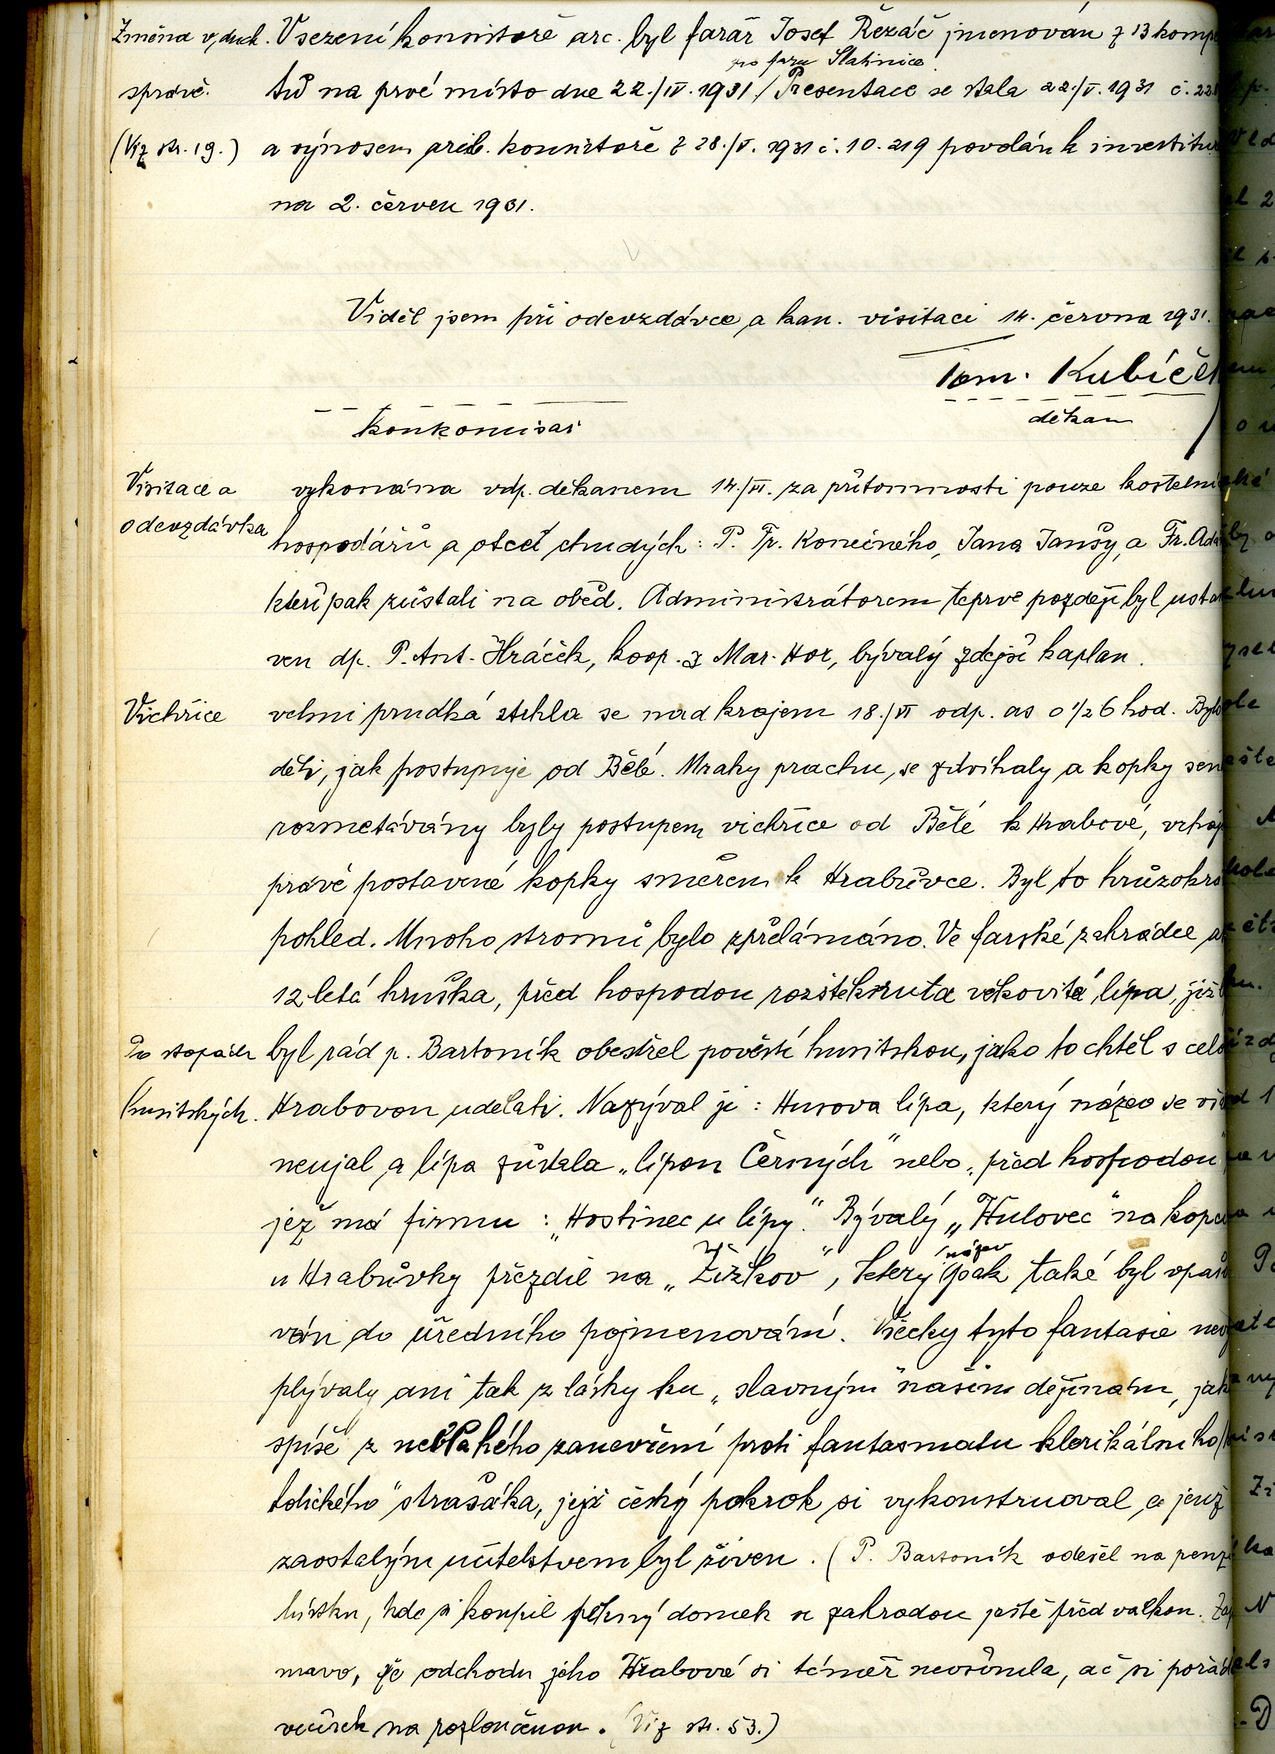 Změna v duch. V sezení konsistoře arc. byl farář Josef Řezáč jmenován z 13 kompe
pro faru Slatinice
správě. tů na prvé místo dne 22./IV. 1931 / Presentace se stala 22./V. 1931 č.
(Viz str. 19.) a výnosem arcib. konsistoře z 28./V. 1931 č. 10.219 povolán k investituře
na 2. červen 1931.
Viděl jsem při odevzdávce a kan. visitaci 14. června 1931.
Tom. Kubíček
děkan
konkomisař
Visitace a vykonána vdp. děkanem 14./VI. za přítomnosti pouze kostelní
odevzdávka hospodářů a otců chudých: P. Fr. Konečného, Jana Jansy, a Fr.
kteří pak zůstali na oběd. Administrátorem teprve později byl usta
ven dp. P. Ant. Hráček, koop. z Mar. Hor, bývalý zdejší kaplan.
Vichřice velmi prudká strhla se nad krajem 18./VI odp. as o 1/2 6 hod. Bylo
děti, jak postupuje od Bělé. Mraky prachu, se zdvihaly a kopky sen
rozmetávány byly postupem vichřice od Bělé k Hrabové,
právě postavené kopky směrem k Hrabůvce. Byl to hrůzokrá
pohled. Mnoho stromů bylo zpřelámáno. Ve farské zahrádce
12 letá hruška, před hospodou rozštěknuta věkovitá lípa, již
Po stopách byl rád p. Bartoník obestřel pověstí husitskou, jako to chtěl s celou
husitských. Hrabovou udělati. Nazýval ji: Husova lípa, který název se
neujal a lípa zůstala „lípou Černých" nebo „před hospodou"
jež má firmu: „Hostinec u lípy." Bývalý „Hulovec" na kopci
u Hrabůvky přezdil na „Žižkov", který název pak také byl
ván do úředního pojmenování. Všecky tyto fantasie nevy
plývaly ani tak z lásky ku „slavným" našim dějinám, jak
spíše z neblahého zanevření proti fantasmatu klerikálního
tolického" strašáka, jejž český pokrok si vykonstruoval a jenž
zaostalým učitelstvem byl živen. (P. Bartoník odešel na penzi
kde si koupil pěkný domek se zahradou ještě před válkou.
mavo, že odchodu jeho Hrabová si téměř nevšimla, ač si
večírek na rozloučenou. (Viz str. 53.)